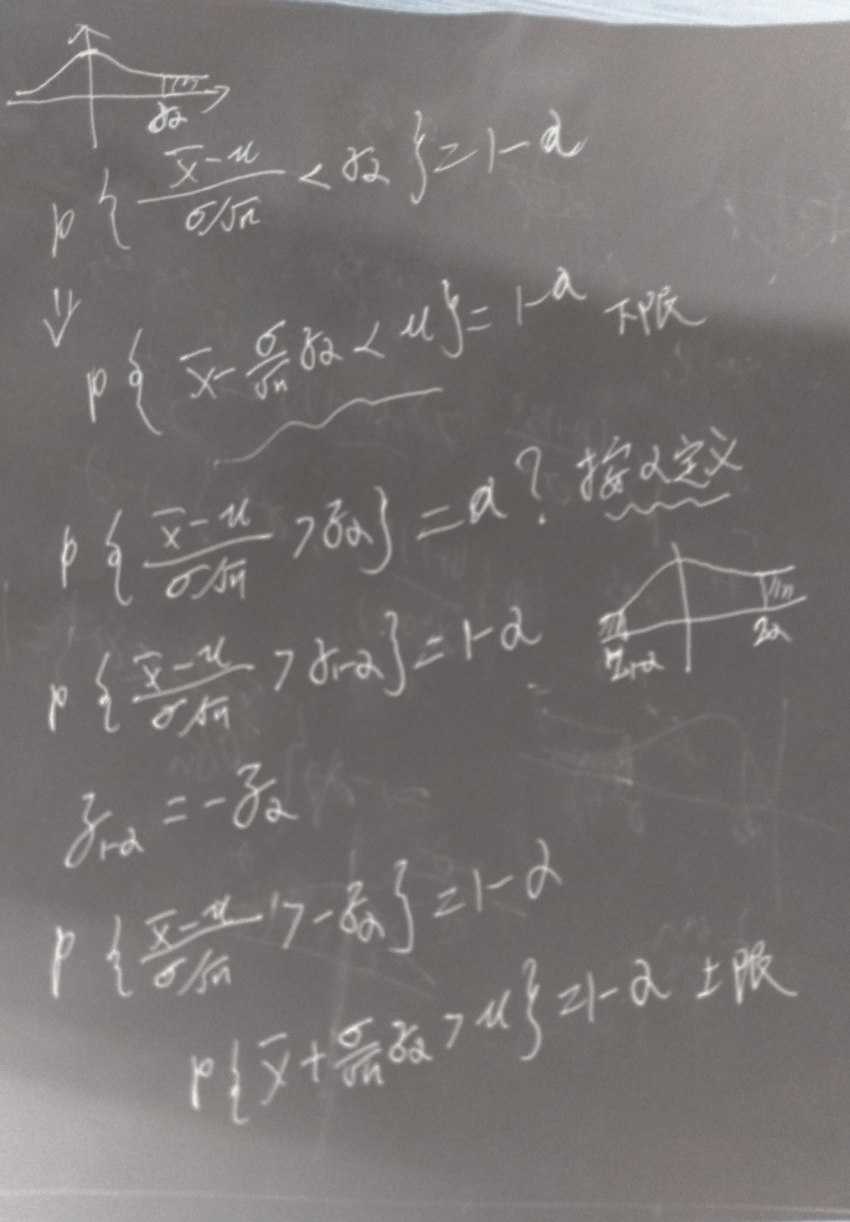 zα
P{ (x̄-u)/(σ/√n) < zα } = 1-α
⇓
P{ x̄ - σ/√n zα < u } = 1-α 下限
P{ (x̄-u)/(σ/√n) > zα } = α ? 按α定义
P{ (x̄-u)/(σ/√n) > z1-α } = 1-α
z1-α zα
z1-α = -zα
P{ (x̄-u)/(σ/√n) > -zα } = 1-α
P{ x̄ + σ/√n zα > u } = 1-α 上限